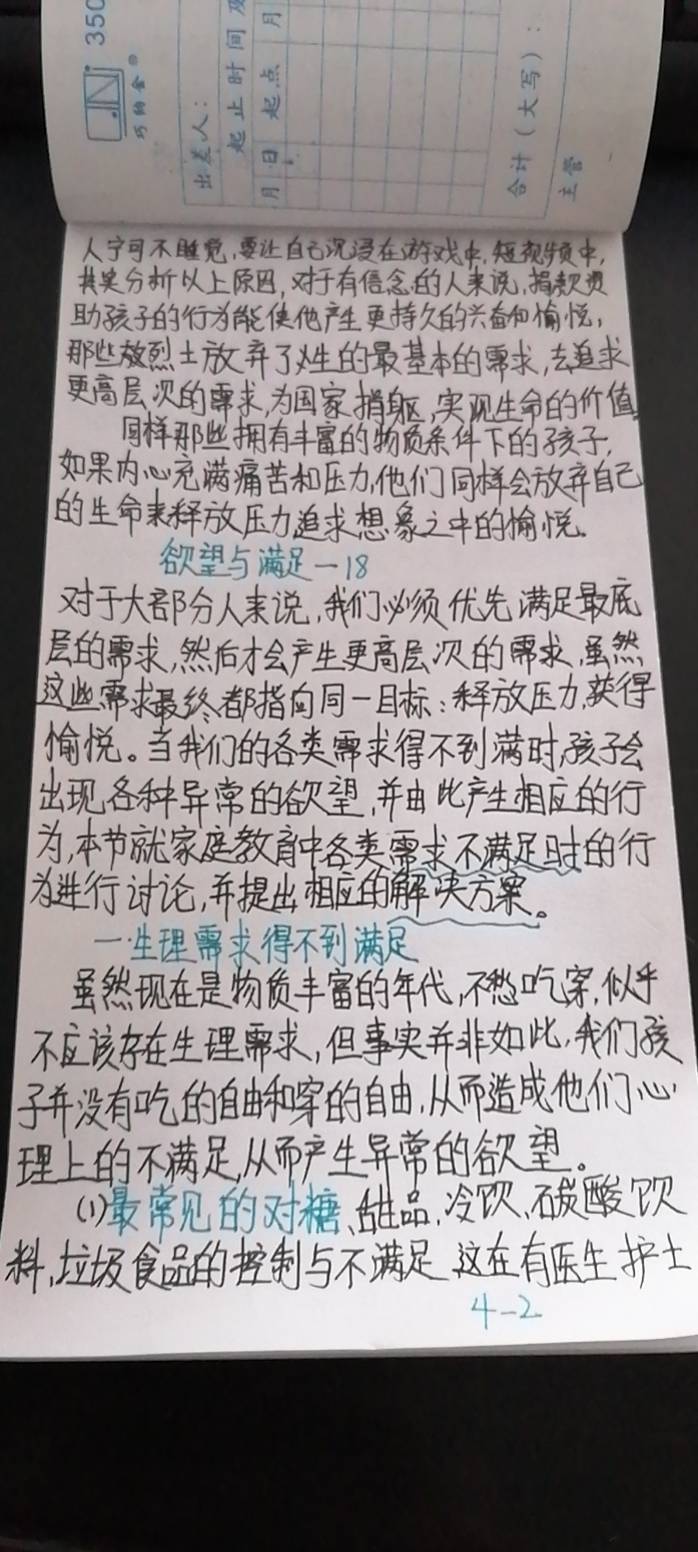 350
巧的舍
出差人：
起止时间及
月 日 起点 月
合计（大写）：
主管
人宁可不睡觉,要让自己沉浸在游戏中,短视频中,
其实分析以上原因,对于有信念的人来说,捐款资
助孩子的行为能使他产生更持久的兴奋和愉悦,
那些放烈士放弃了人生的最基本的需求,去追求
更高层次的需求,为国家捐躯,实现生命的价值。
同样那些拥有丰富的物质条件下的孩子,
如果内心充满痛苦和压力,他们同样会放弃自己
的生命来释放压力,追求想象之中的愉悦。
欲望与满足—18
对于大部分人来说,我们必须优先满足最底
层的需求,然后才会产生更高层次的需求,虽然
这些需求最终都指向同一目标:释放压力,获得
愉悦。当我们的各类需求得不到满时,孩子会
出现各种异常的欲望,并由此产生相应的行
为,本节就家庭教育中各类需求不满足时的行
为进行讨论,并提出相应的解决方案。
一生理需求得不到满足
虽然现在是物质丰富的年代,不愁吃穿,似乎
不应该存在生理需求,但事实并非如此,我们孩
子并没有吃的自由和穿的自由,从而造成他们心
理上的不满足,从而产生异常的欲望。
(1)最常见的对糖、甜品,冷饮、碳酸饮
料,垃圾食品的控制与不满足 这在有医生护士
4-2